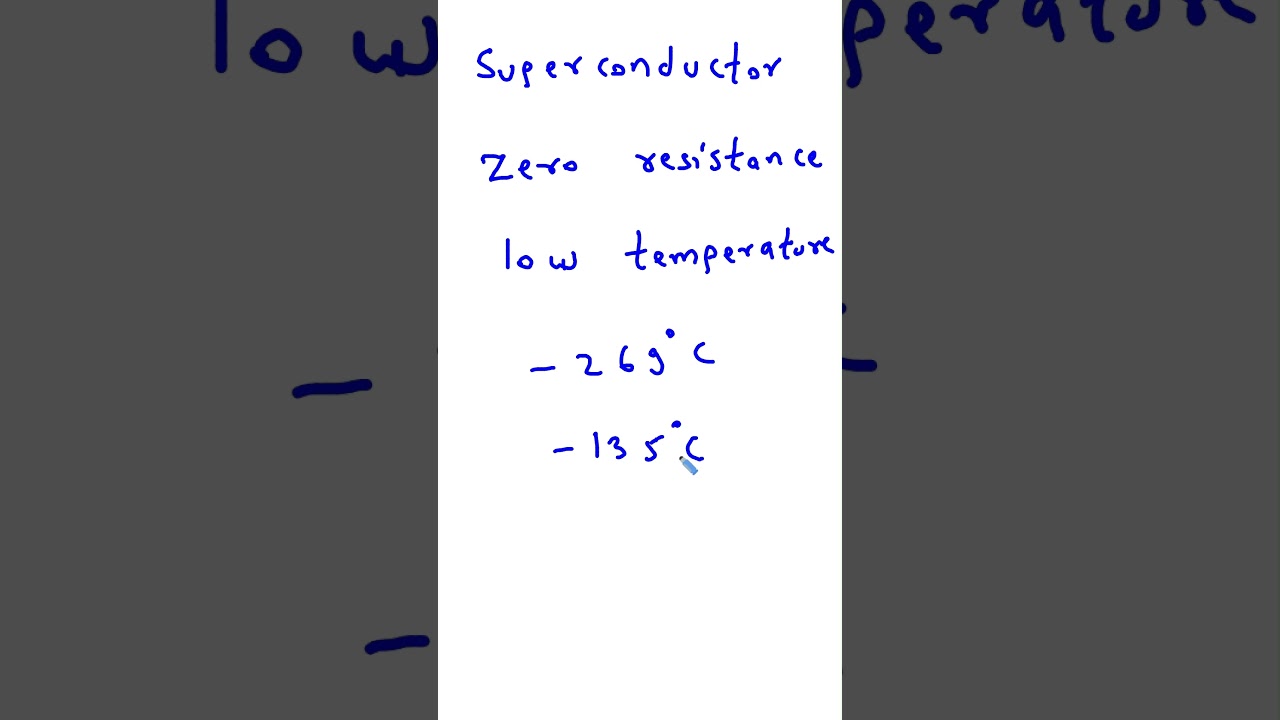 Superconductor
Zero resistance
low temperature
-269°C
-135°C